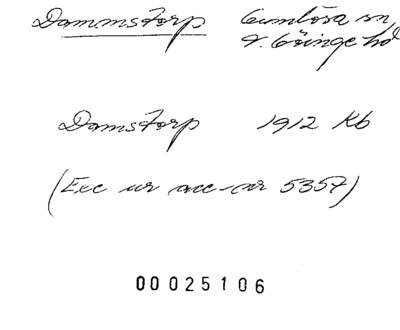 Dammstorp Gumlösa sn
V. Göinge hd
Damstorp 1912 Kb
(Exc ur acc-nr 5357)
00025106